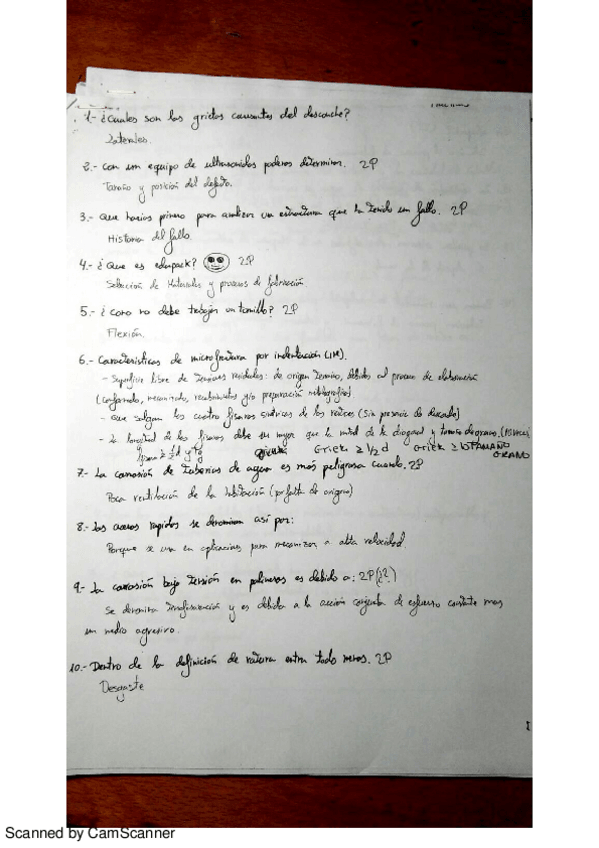 1.- ¿Cuales son las grietas causantes del desconche?
Laterales.
2.- Con un equipo de ultrasonidos podemos determinar. 2P
Tamaño y posición del defecto.
3.- Que harias primero para analizar una estructura que ha tenido un fallo. 2P
Historia del fallo.
4.- ¿Que es edupack? 2P
Selección de Materiales y procesos de fabricación
5.- ¿Como no debe trabajar un tornillo? 2P
Flexión.
6.- Caracteristicas de microfractura por indentación (IM).
- Superficie libre de tensiones residuales: de origen termico, debidas al proceso de elaboración
(conformado, mecanizado, recubrimientos y/o preparación metalografica)
- Que salgan las cuatro fisuras de los vértices (Sin presencia de descado)
- La longitud de las fisuras debe ser mayor que la mitad de la diagonal y tamaño de grano.
GRIEK ≥ 1/2 d GRIEK ≥ 10 TAMAÑO
GRANO
7.- La corrosión de tuberias de agua es más peligrosa cuando. 2P
Poca ventilación de la habitación (por falta de origeno)
8.- Los aceros rapidos se denominan así por:
Porque se usa en aplicaciones para mecanizar a alta velocidad.
9.- La corrosión bajo tensión en polimeros es debido a: 2P (¿2)
Se denomina y es debida a la acción conjunta de esfuerzo constante mas
un medio agresivo.
10.- Dentro de la definición de rotura entra todo menos. 2P
Desgaste
Scanned by CamScanner